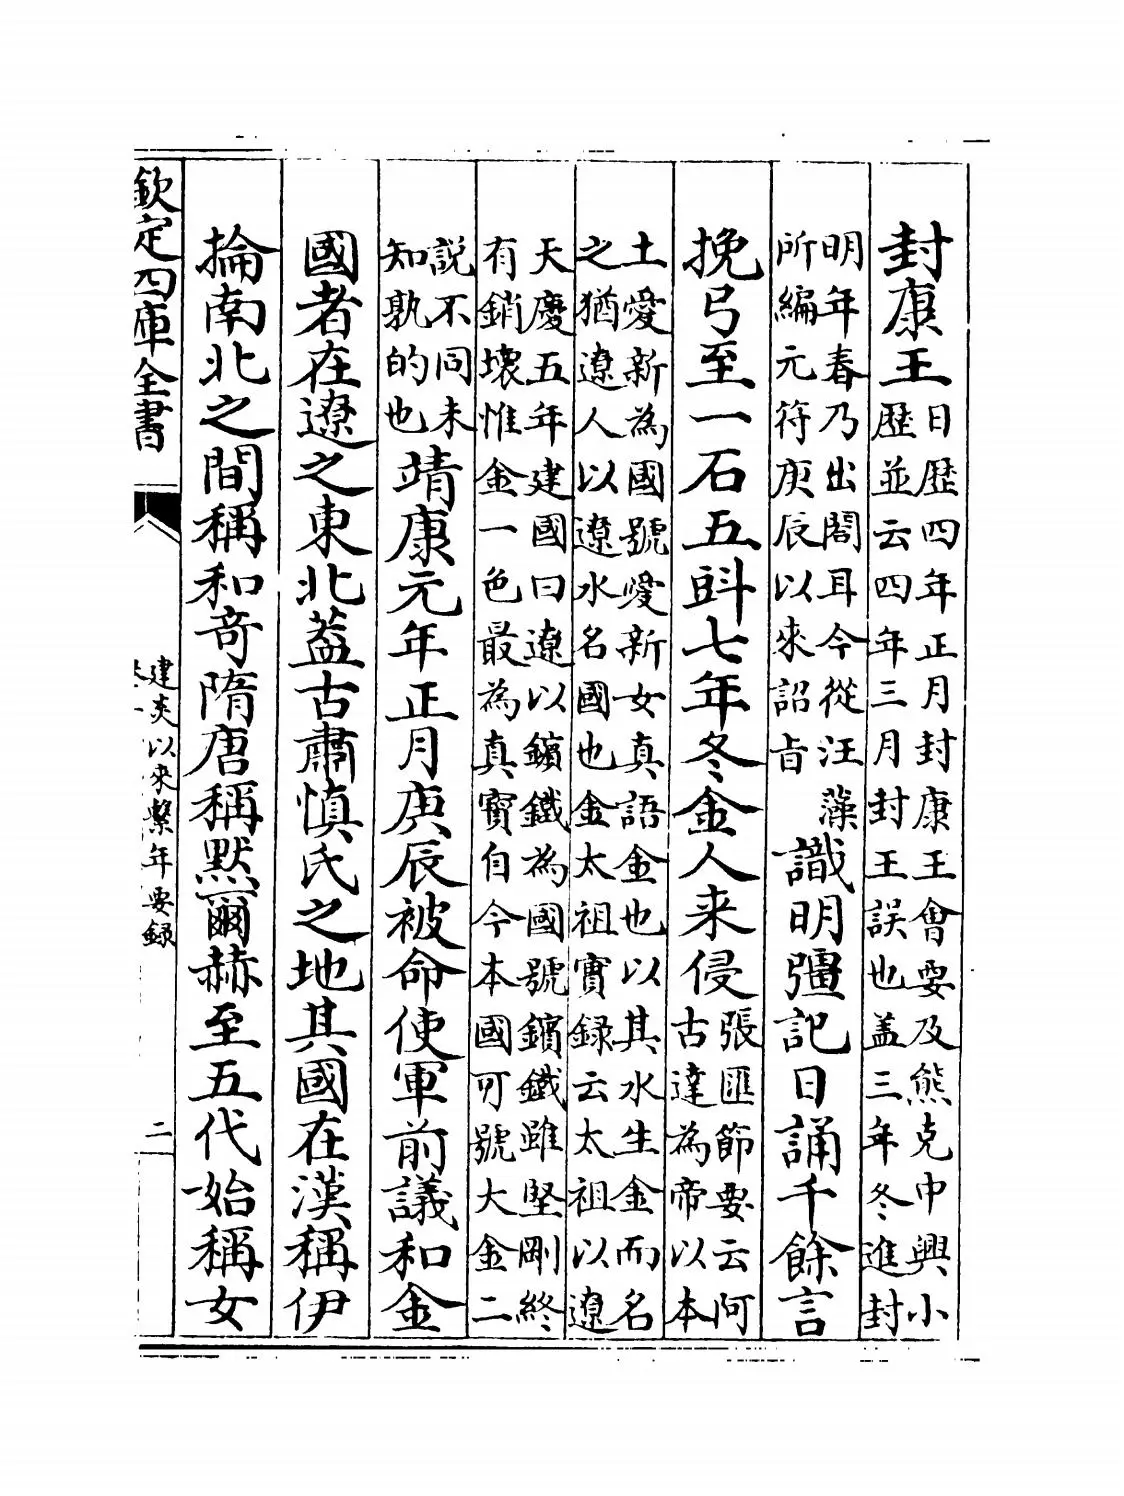 封康王日歴四年正月封康王會要及熊克中興小
歴並云四年三月封王誤也盖三年冬進封
明年春乃出閤耳今從汪藻
所編元符庚辰以來詔㫖識明彊記日誦千餘言
挽弓至一石五㪷七年冬金人来侵張匯節要云阿
古達為帝以本
土愛新為國號愛新女真語金也以其水生金而名
之猶遼人以遼水名國也金太祖實録云太祖以遼
天慶五年建國曰遼以鑌鐵為國號鑌鐵雖堅剛終
有銷壞惟金一色最為真寶自今本國可號大金二
說不同未
知孰的也靖康元年正月庚辰被命使軍前議和金
國者在遼之東北葢古肅慎氏之地其國在漢稱伊
掄南北之間稱和竒隋唐稱默爾赫至五代始稱女
欽定四庫全書
建炎以來繫年要録
二